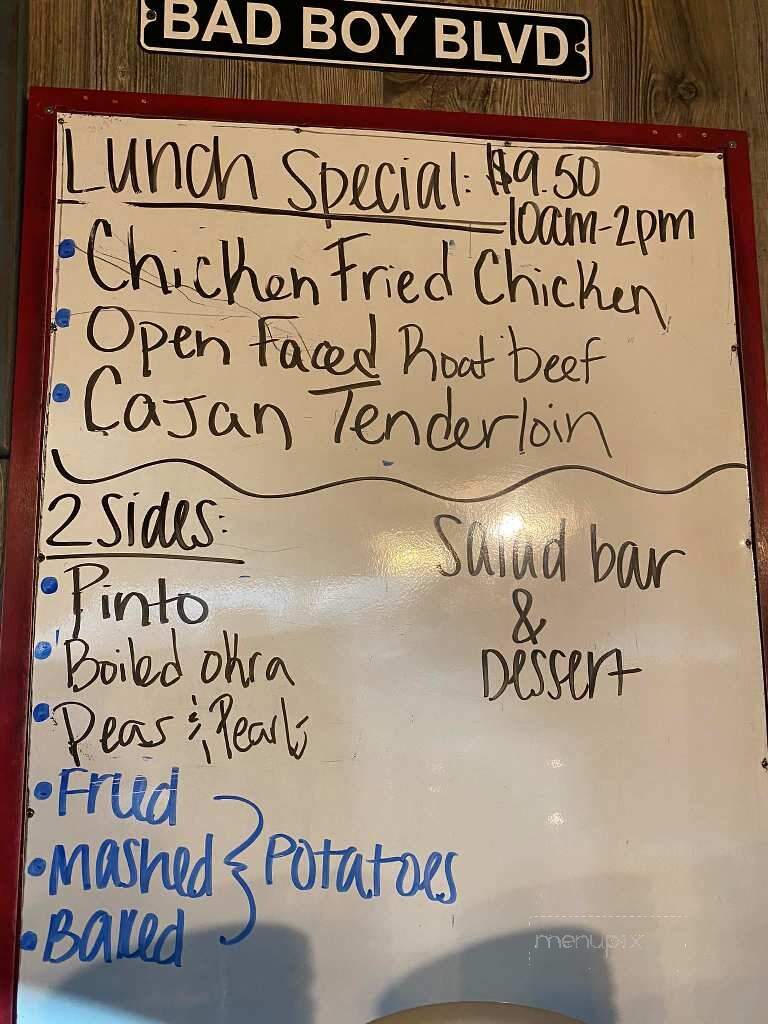 BAD BOY BLVD
Lunch Special: $9.50
10am-2pm
Chicken Fried Chicken
Open Faced Roat beef
Cajan Tenderloin
2 Sides:
Pinto
Boiled okra
Peas & Pearls
Fried
Mashed } Potatoes
Baked
Salad bar
&
Dessert
menupix